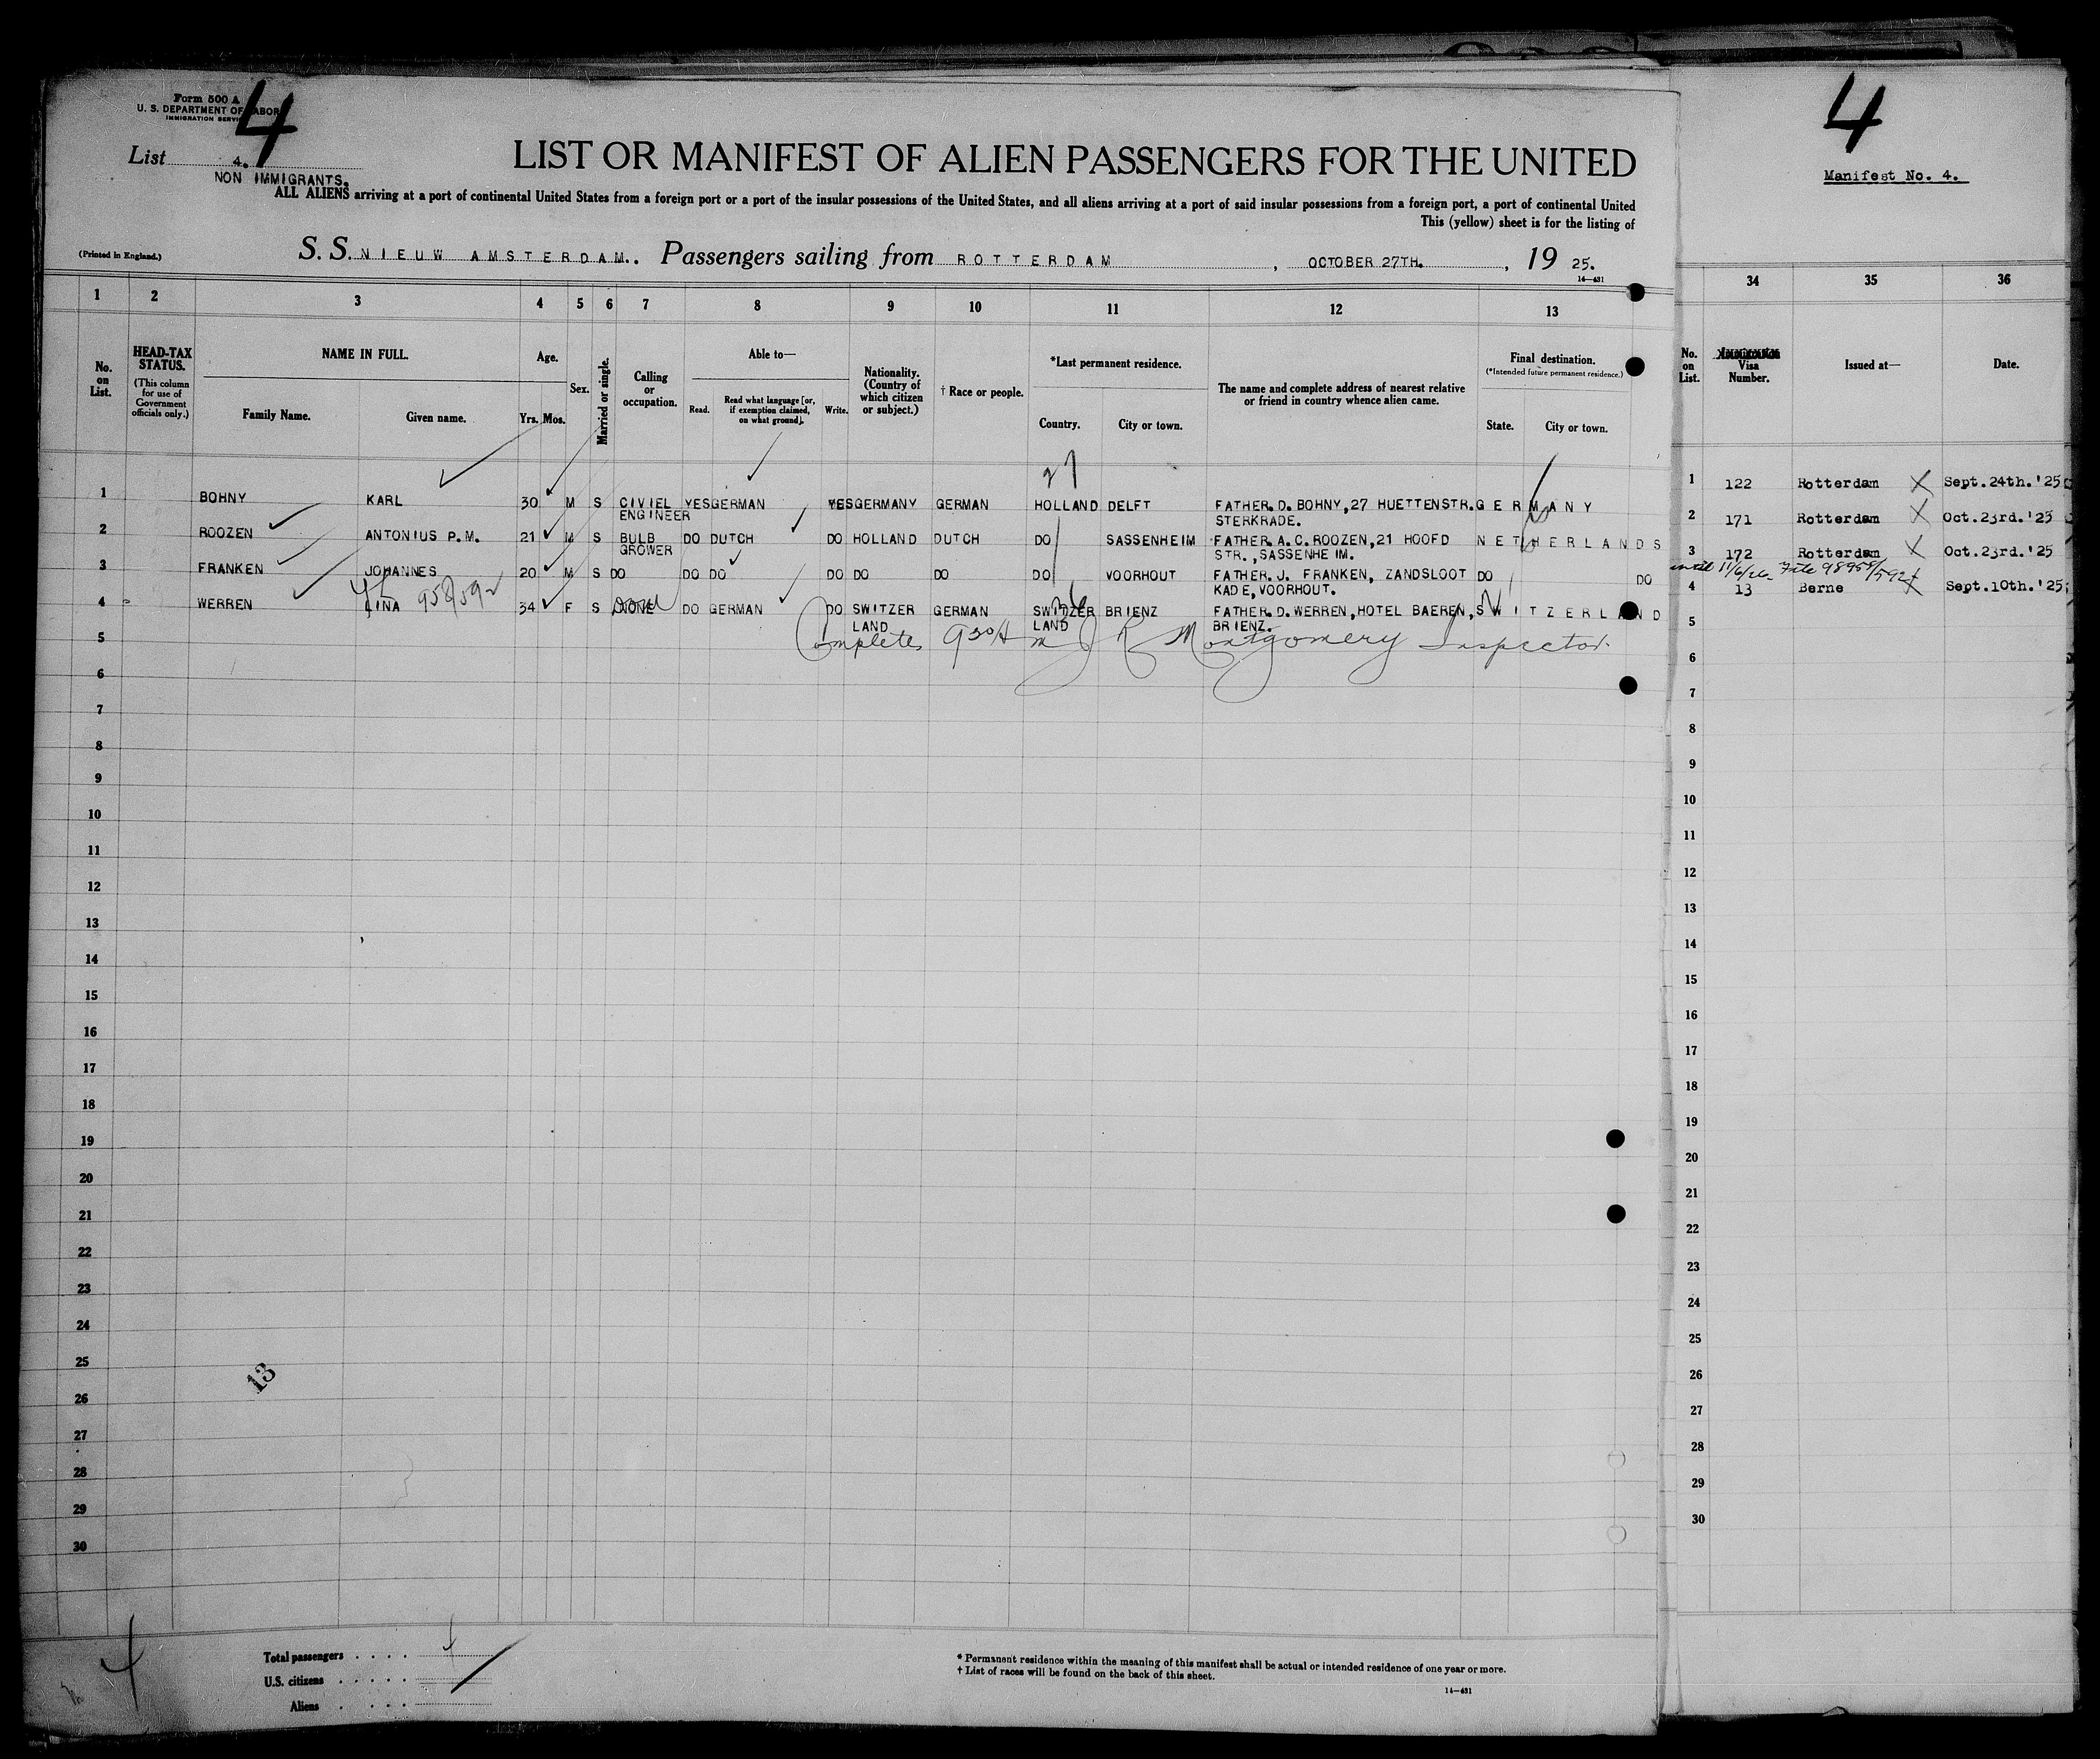 Form 500 A
U. S. DEPARTMENT OF LABOR
IMMIGRATION SERVICE
4
List 4.
NON IMMIGRANTS.
LIST OR MANIFEST OF ALIEN PASSENGERS FOR THE UNITED
ALL ALIENS arriving at a port of continental United States from a foreign port or a port of the insular possessions of the United States, and all aliens arriving at a port of said insular possessions from a foreign port, a port of continental United
This (yellow) sheet is for the listing of
(Printed in England.)
S. S. NIEUW AMSTERDAM.. Passengers sailing from ROTTERDAM , OCTOBER 27TH. , 19 25.
14—431
1 2 3 4 5 6 7 8 9 10 11 12 13
No. on List.
HEAD-TAX STATUS.
(This column for use of Government officials only.)
NAME IN FULL.
Family Name. Given name.
Age.
Yrs. Mos.
Sex.
Married or single.
Calling or occupation.
Able to—
Read. Read what language [or, if exemption claimed, on what ground]. Write.
Nationality. (Country of which citizen or subject.)
† Race or people.
*Last permanent residence.
Country. City or town.
The name and complete address of nearest relative or friend in country whence alien came.
Final destination.
(*Intended future permanent residence.)
State. City or town.
27
1 BOHNY KARL 30 M S CIVIEL YES GERMAN YES GERMANY GERMAN HOLLAND DELFT FATHER. D. BOHNY, 27 HUETTENSTR. GERMANY
ENGINEER STERKRADE.
2 ROOZEN ANTONIUS P.M. 21 M S BULB DO DUTCH DO HOLLAND DUTCH DO SASSENHEIM FATHER. A. C. ROOZEN, 21 HOOFD NETHERLANDS
GROWER STR., SASSENHEIM.
3 FRANKEN JOHANNES 20 M S DO DO DO DO DO DO DO VOORHOUT FATHER. J. FRANKEN, ZANDSLOOT DO DO
KADE, VOORHOUT.
4 WERREN LINA 34 F S NONE DO GERMAN DO SWITZER GERMAN SWITZER BRIENZ FATHER. D. WERREN, HOTEL BAEREN, SWITZERLAND
LAND LAND BRIENZ.
Complete 9 30 A m J R Montgomery Inspector.
5
6
7
8
9
10
11
12
13
14
15
16
17
18
19
20
21
22
23
24
25
13
26
27
28
29
30
Total passengers
U.S. citizens
Aliens
4
* Permanent residence within the meaning of this manifest shall be actual or intended residence of one year or more.
† List of races will be found on the back of this sheet.
14—431
4
Manifest No. 4.
34 35 36
No. on List.
Visa Number.
Issued at—
Date.
1 122 Rotterdam Sept.24th.'25
2 171 Rotterdam Oct.23rd.'25
3 172 Rotterdam Oct.23rd.'25
until 11/6/26 File
4 13 Berne Sept.10th.'25
5
6
7
8
9
10
11
12
13
14
15
16
17
18
19
20
21
22
23
24
25
26
27
28
29
30